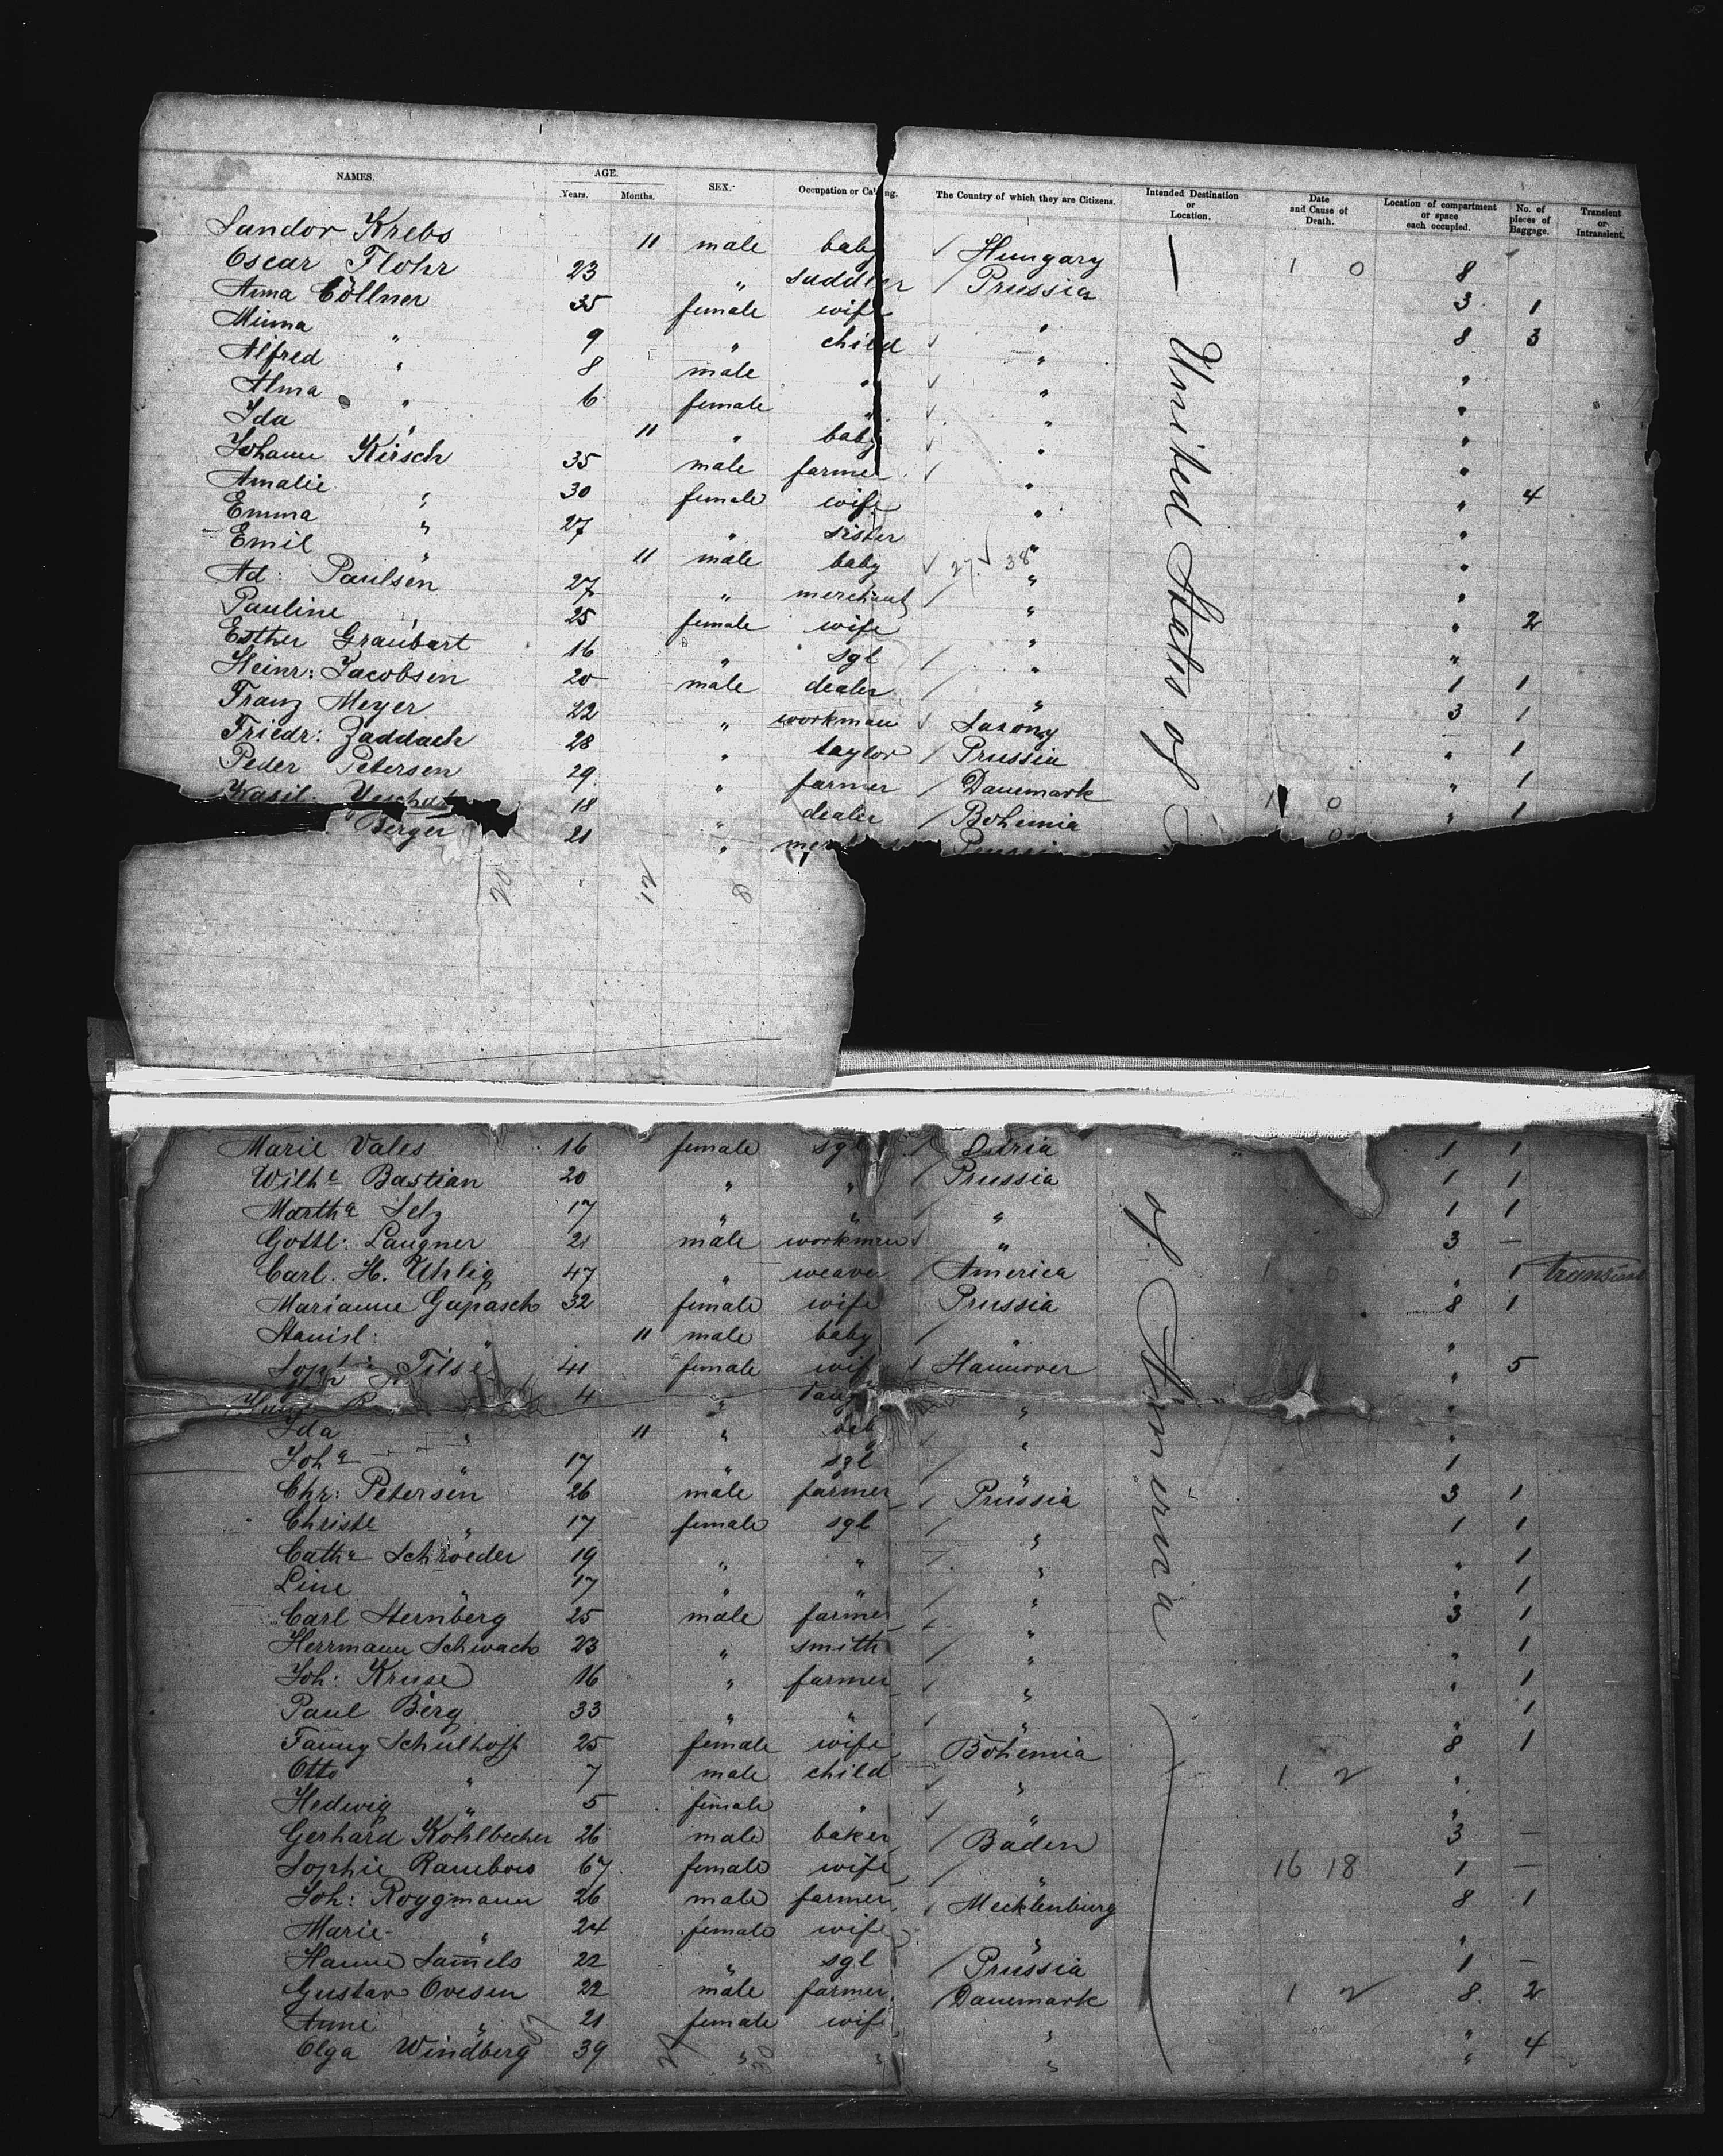 NAMES. AGE. Years. Months. SEX. Occupation or Calling. The Country of which they are Citizens. Intended Destination or Location. Date and Cause of Death. Location of compartment or space each occupied. No. of pieces of Baggage. Transient or Intransient.
Sandor Krebs 11 male baby Hungary 1 0 8
Oscar Flohr 23 " saddler Prussia 3 1
Anna Cöllner 35 female wife " 8 3
Minna " 9 " child " "
Alfred " 8 male " " "
Alma " 6 female " " "
Ida " 11 " baby " "
Johann Kirsch 35 male farmer " " 4
Amalie " 30 female wife " "
Emma " 27 " sister " "
Emil " 11 male baby 27 38 " "
Ad: Paulsen 27 " merchant " " 2
Pauline " 25 female wife " "
Esther Graubart 16 " sgl " 1 1
Heinr: Jacobsen 20 male dealer " 3 1
Franz Meyer 22 " workman Saxony " 1
Friedr: Zaddach 28 " taylor Prussia " 1
Peder Petersen 29 " farmer Danemark 1 0 " 1
18 " dealer Bohemia 0
Berger 21 "
20 12 8
United States of
Marie Vales 16 female sgl 1 1
Wilhe Bastian 20 " " Prussia 1 1
Martha Selz 17 " " " 1 1
Gottl: Langner 21 male workman " 3 —
Carl. H. Uhlig 47 " weaver America 1 0 " 1 transient
Marianne Gapasch 32 female wife Prussia 8 1
Stanisl: " 11 male baby " "
Tilse 41 female wife Hannover " 5
4 " " "
Ida " 11 " baby " "
Joha " 17 " sgl 1
Chr: Petersen 26 male farmer Prussia 3 1
Christe " 17 female sgl " 1 1
Catha Schröeder 19 " " " " 1
Line " 17 " " " " 1
Carl Sternberg 25 male farmer " 3 1
Herrmann Schwach 23 " smith " " 1
Joh: Kruse 16 " farmer " " 1
Paul Berg 33 " " " " 1
Fanny Schulhoff 25 female wife Bohemia 8 1
Otto " 7 male child " 1 2 "
Hedwig " 5 female " " "
Gerhard Kohlbecher 26 male baker Baden 3 —
Sophie Rambow 67 female wife " 16 18 1 —
Joh: Roggmann 26 male farmer Mecklenburg 8 1
Marie " 24 female wife " "
Hanne Samels 22 " sgl Prussia 1 —
Gustav Ovesen 22 male farmer Danemark 1 2 8 2
Anne " 21 female wife " "
Olga Windberg 39 " " " " 4
of America